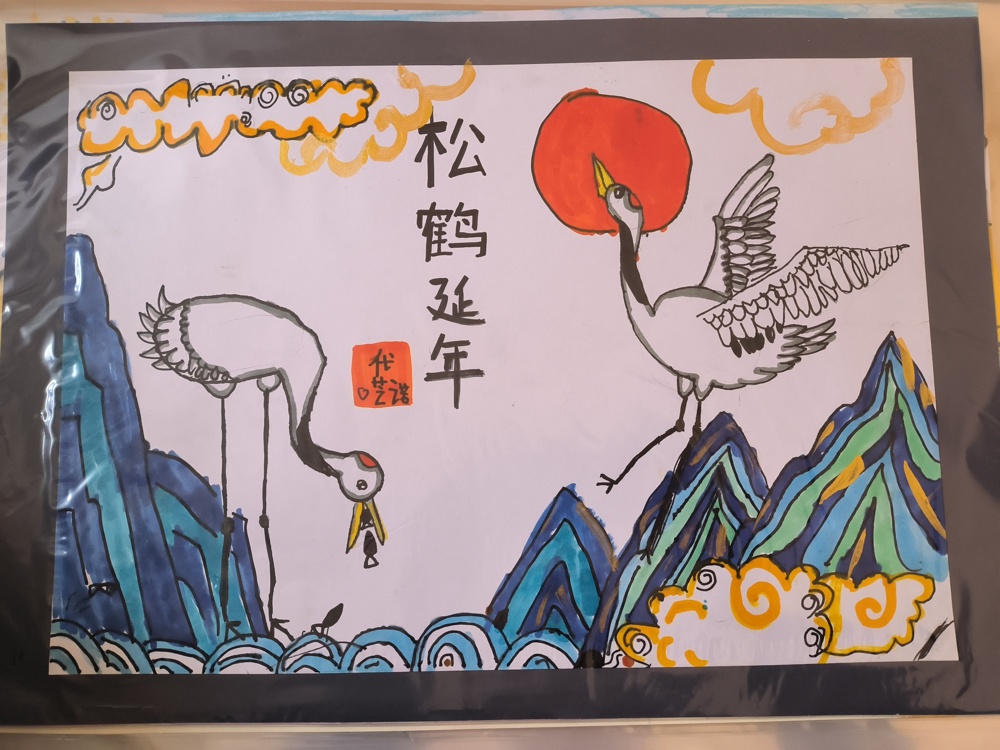 松鹤延年
代
艺诺